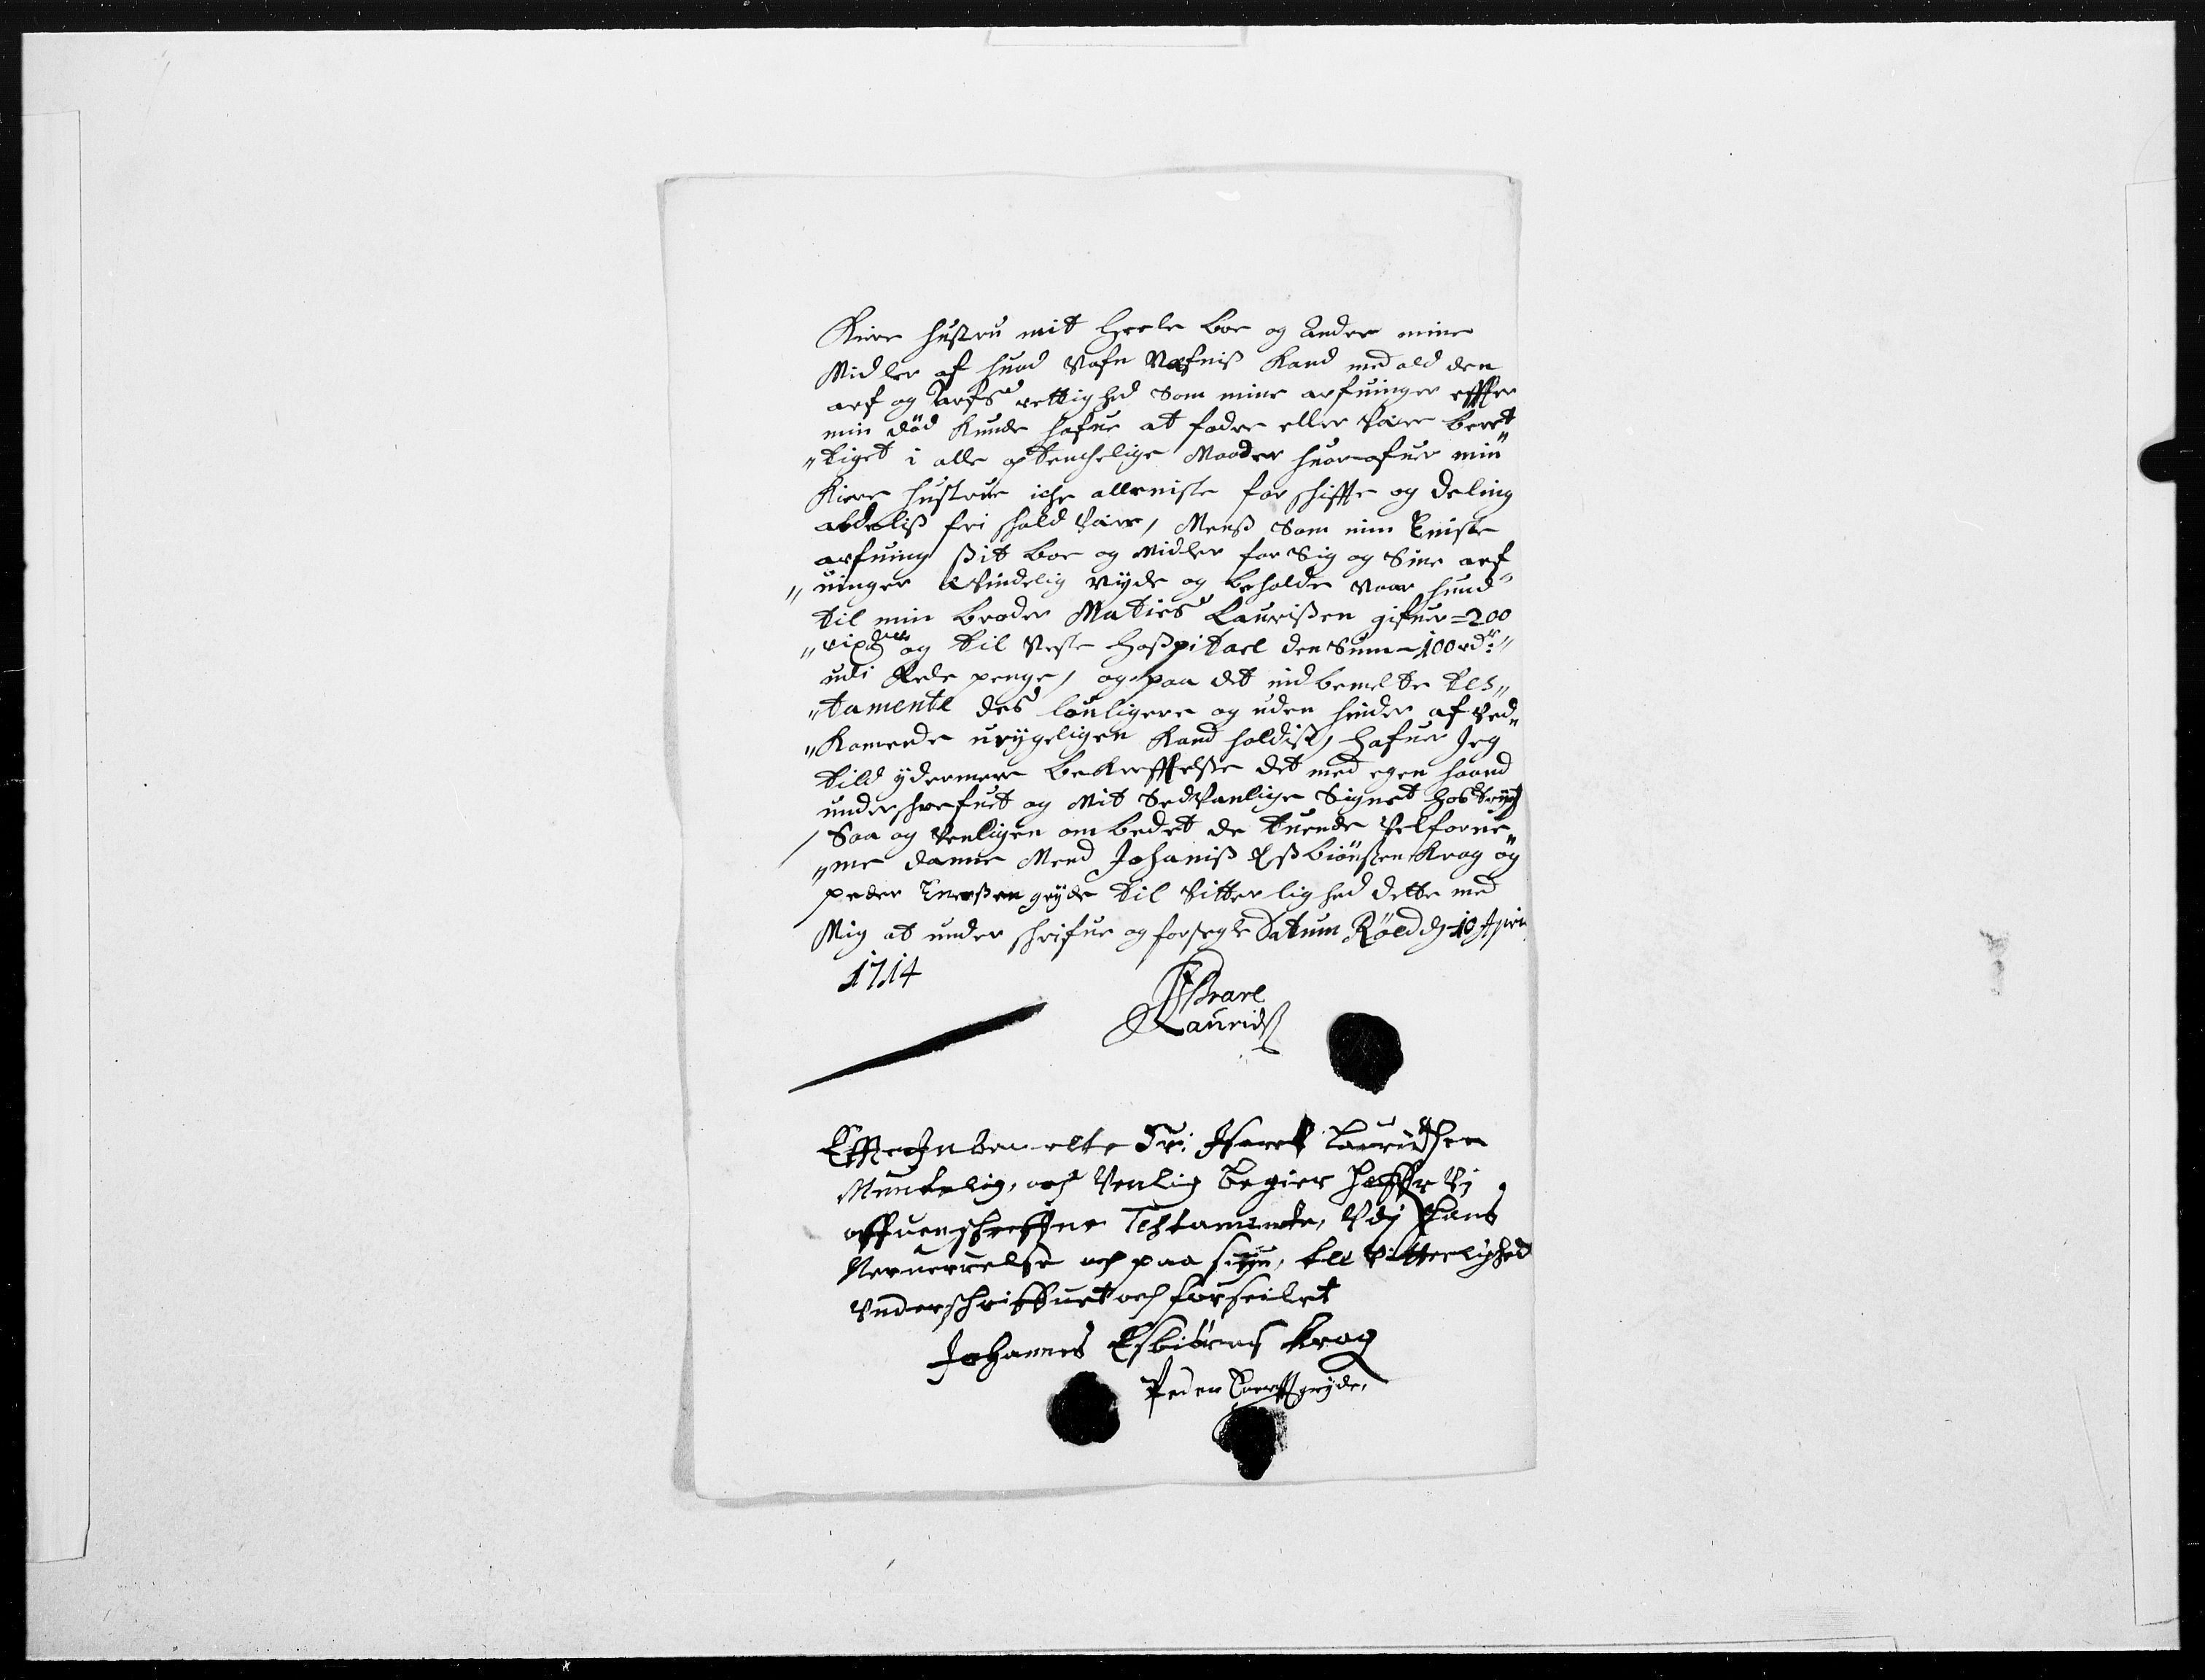 Kiere hustru mit heele boe og Andre mine
Midler af huad Nafn Nefnis kand med ald den
arf og Arfs rettighed som mine arfuinger effter
min død kunde hafue at fodre eller være beret
"tiget i alle optenchelige Maader huor ofuer min
Kiere hustrue iche alleniste for schiffte og deling
aldelis fri schald være, Mens som min Eniste
arfuing sit boe og Midler for Sig og Sine arf
"uinger nyde og beholde Naar hund
til min broder Maties Laurissen gifuer = 200
"rixdlr og til Neste Hospitael den Sum - 100 rdr:
udi Rede penge, og paa det indbemelte tes"
"tamente des louligere og uden hinder af Ved"
"Komende urygeligen kand holdis, hafuer Jeg
till ydermere bekreffelse det med egen haand
underschrefuet og Mit Sedvanlige Signet hostrygt
Saa og Venligen ombedet de tuende Velforne"
"me danne Mend Johanis Esbiønsen Krag og
peder Enersen gryde til Vitterlighed dette med
Mig at under schrifue og forsegle Datum Røld d 10 Apri
1714
Israel
Laurids
Effter Inbemelte Sr: Israel Lauridsen
Muntelig, och Venlig begier haffr Vj
offuenschreffne Testamente, Vdj Hans
Neruerrelse och paa siun, till Vitterlighed
Vnderschriffuet och forseilet
Johannes Esbiørns Krag
Peder Enerss gryde,